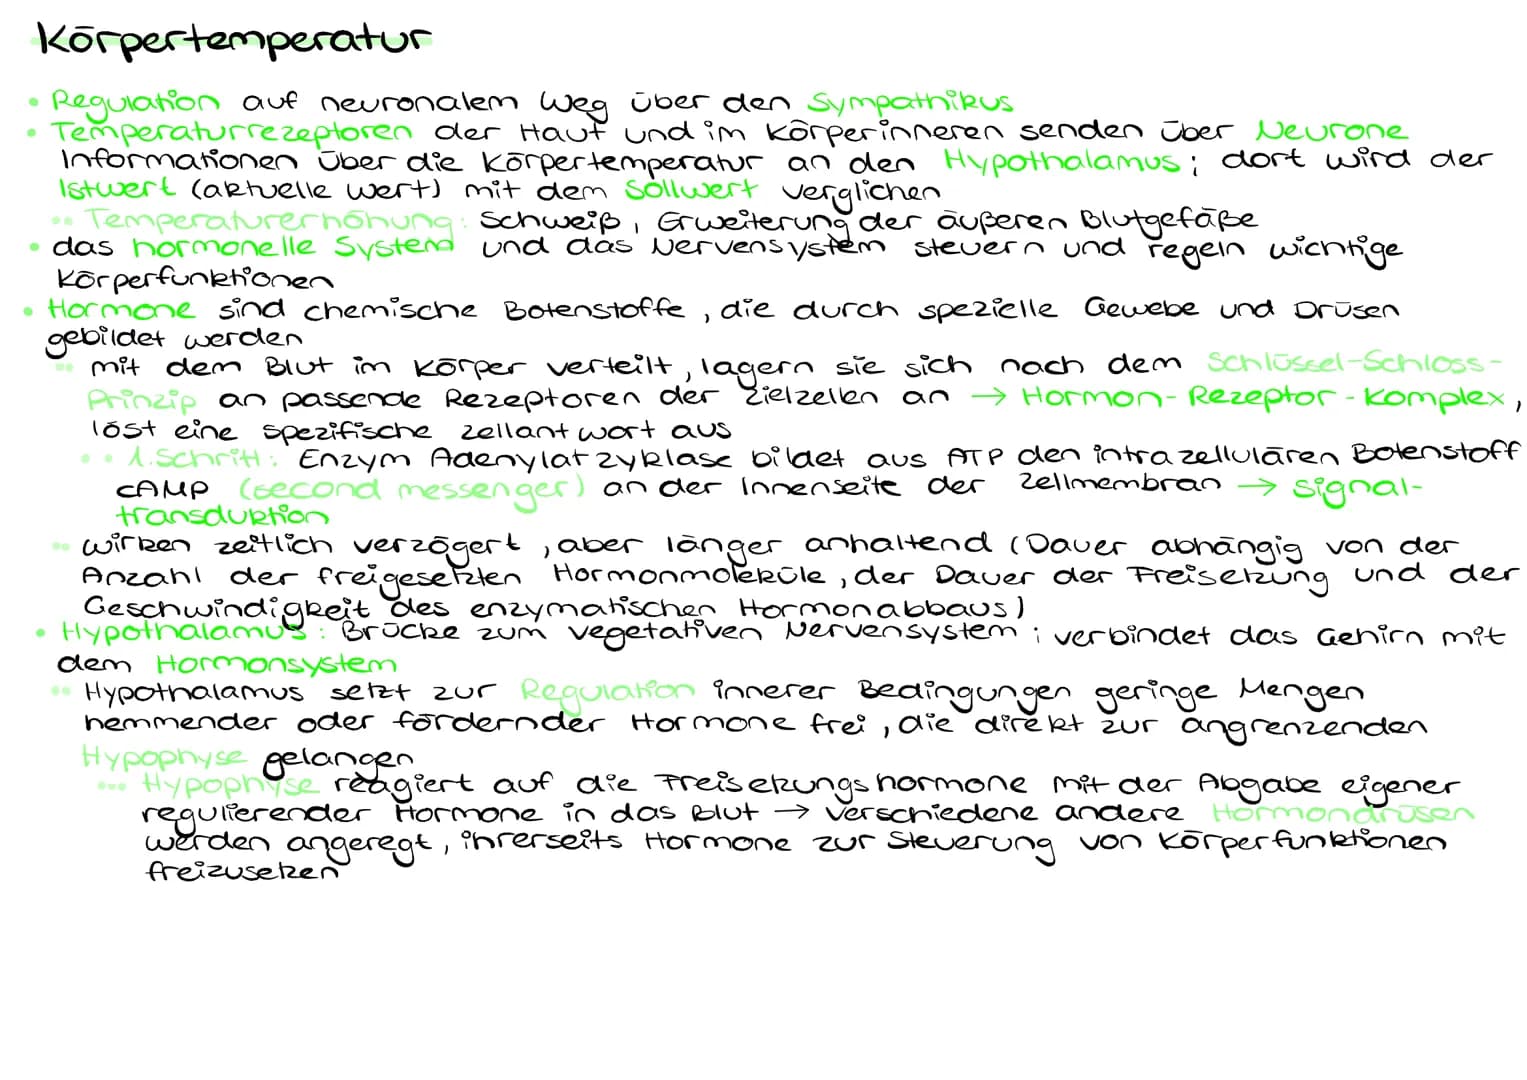 Körpertemperatur
• Regulation auf neuronalem Weg über den Sympathikus
• Temperaturrezeptoren der Haut und im Körperinneren senden über Neurone
Informationen über die Körpertemperatur an den Hypothalamus; dort wird der
Istwert (aktuelle Wert) mit dem Sollwert verglichen
•• Temperaturerhöhung: Schweiß, Erweiterung der äußeren Blutgefäße
• das hormonelle System und das Nervensystem steuern und regeln wichtige
Körperfunktionen
• Hormone sind chemische Botenstoffe, die durch spezielle Gewebe und Drüsen
gebildet werden
•• mit dem Blut im Körper verteilt, lagern sie sich nach dem Schlüssel-Schloss-
Prinzip an passende Rezeptoren der Zielzellen an → Hormon-Rezeptor-Komplex,
löst eine spezifische Zellantwort aus
•• 1. Schritt: Enzym Adenylatzyklase bildet aus ATP den intrazellulären Botenstoff
cAMP (second messenger) an der Innenseite der Zellmembran → Signal-
transduktion
•• wirken zeitlich verzögert, aber länger anhaltend (Dauer abhängig von der
Anzahl der freigesetzten Hormonmoleküle, der Dauer der Freisetzung und der
Geschwindigkeit des enzymatischen Hormonabbaus)
• Hypothalamus: Brücke zum vegetativen Nervensystem; verbindet das Gehirn mit
dem Hormonsystem
•• Hypothalamus setzt zur Regulation innerer Bedingungen geringe Mengen
hemmender oder fördernder Hormone frei, die direkt zur angrenzenden
Hypophyse gelangen
••• Hypophyse reagiert auf die Freisetzungshormone mit der Abgabe eigener
regulierender Hormone in das Blut → verschiedene andere Hormondrüsen
werden angeregt, ihrerseits Hormone zur Steuerung von Körperfunktionen
freizusetzen